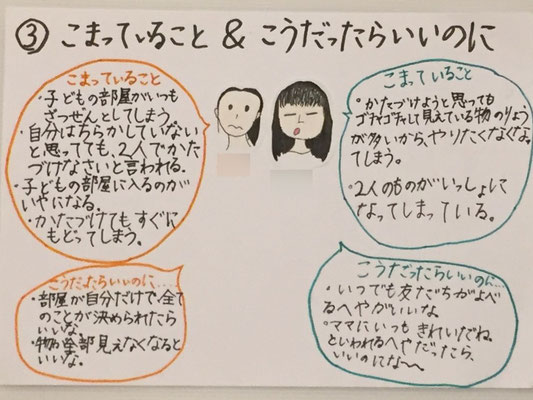 ③ こまっていること & こうだったらいいのに
こまっていること
・子どもの部屋がいつも
ざっせんとしてしまう。
・自分はちらかしていない
と思ってても、2人でかた
づけなさいと言われる。
・子どもの部屋に入るのが
いやになる。
・かたづけても、すぐに
もどってしまう。
こうだったらいいのに……
・部屋が自分だけで、全て
のことが決められたら
いいな。
・物が全部見えなくなると
いいな。
こまっていること
・かたづけようと思っても
ゴチャゴチャして見えている物のりょう
が多いから、やりたくなくなっ
てしまう。
・2人のものがいっしょに
なってしまっている。
こうだったらいいのに…
・いつでも友だちがよべ
るへやがいいな
・ママにいつもきれいだね。
といわれるへやだったら、
いいのにな〜。